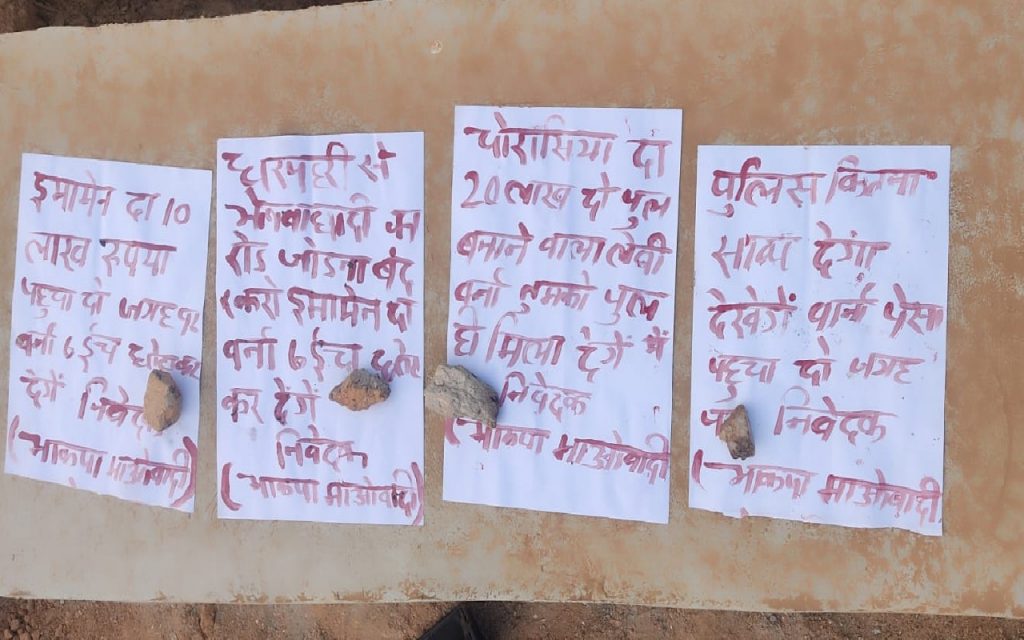 इमामेन दा 10
लाख रुपया
पहुचा दो जगह पर
वर्ना 6 ईंच
देगें निवेदक
(भाकपा माओवादी)
से
रोड जोडना बंद
करो इमामेन दा
वर्ना 6 ईंच
कर देंगे
निवेदक
(भाकपा माओवादी)
चोरासिया दा
20 लाख दो पुल
बनाने वाला लेवी
वर्ना तुमको पुल
मिला देगें में
निवेदक
(भाकपा माओवादी
पुलिस कितना
साथ देगा
देखेगें वार्ना पेसा
पहुचा दो जगह
पर निवेदक
(भाकपा माओवादी